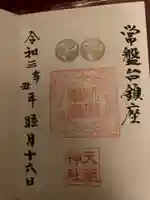 常盤台鎮座
天祖神社
令和三辛丑年睦月十六日